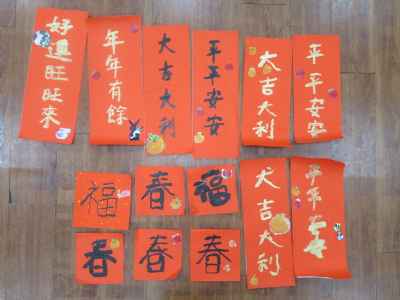 好運旺旺來
年年有餘
大吉大利
平平安安
大吉大利
平平安安
福
春
福
大吉大利
平平安
春
春
春